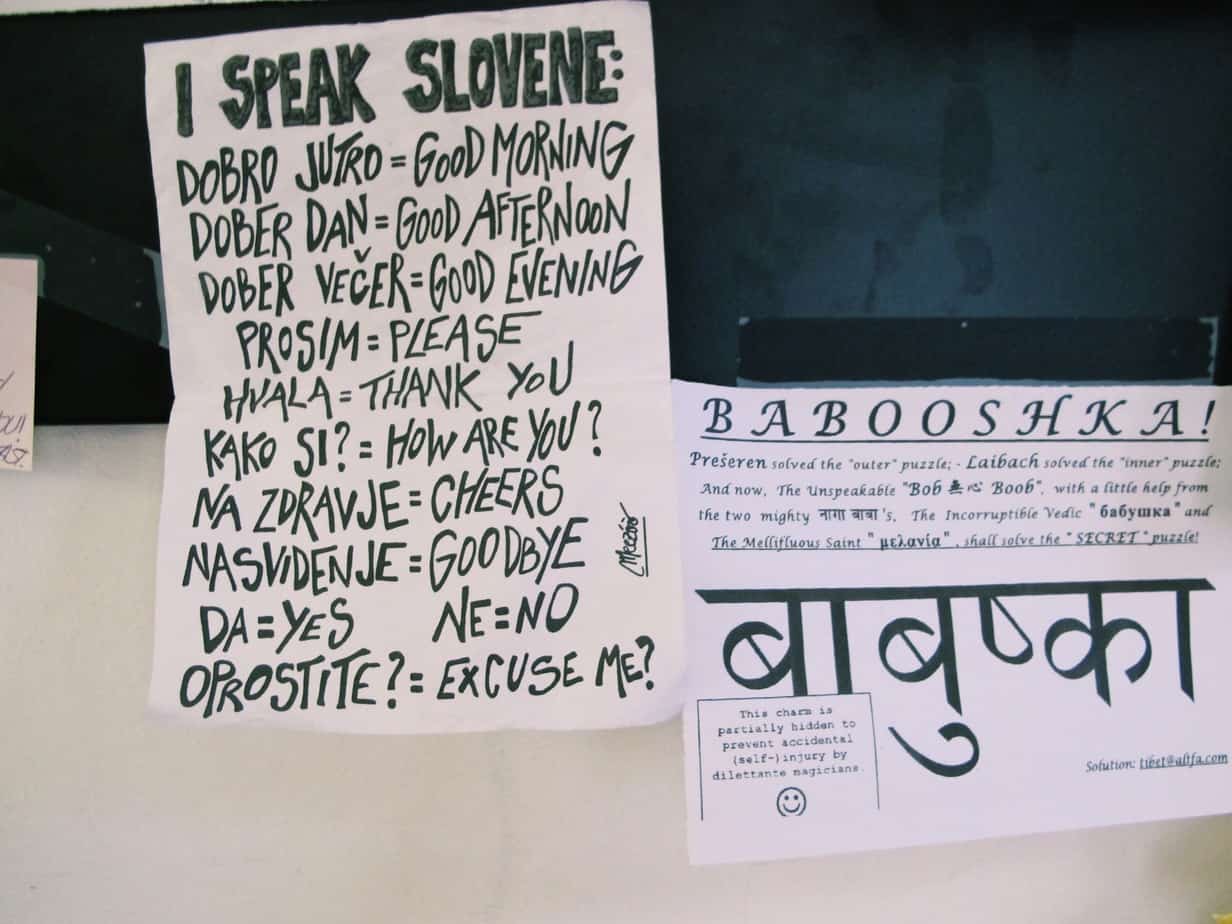 I SPEAK SLOVENE:
DOBRO JUTRO = GOOD MORNING
DOBER DAN = GOOD AFTERNOON
DOBER VEČER = GOOD EVENING
PROSIM = PLEASE
HVALA = THANK YOU
KAKO SI? = HOW ARE YOU?
NA ZDRAVJE = CHEERS
NASVIDENJE = GOODBYE
DA = YES NE = NO
OPROSTITE? = EXCUSE ME?
BABOOSHKA!
Prešeren solved the "outer" puzzle; - Laibach solved the "inner" puzzle;
And now, The Unspeakable "Bob 無心 Boob", with a little help from
the two mighty नागा बाबा 's, The Incorruptible Vedic "бабушка" and
The Mellifluous Saint "μελανία", shall solve the "SECRET" puzzle!
बाबुष्का
This charm is
partially hidden to
prevent accidental
(self-)injury by
dilettante magicians.
Solution: tibet@altfa.com